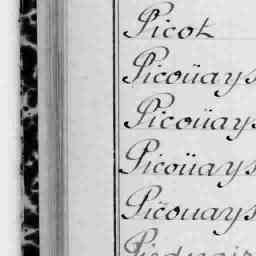 Picot
Picoüays
Picoüays
Picoüays
Picoüays